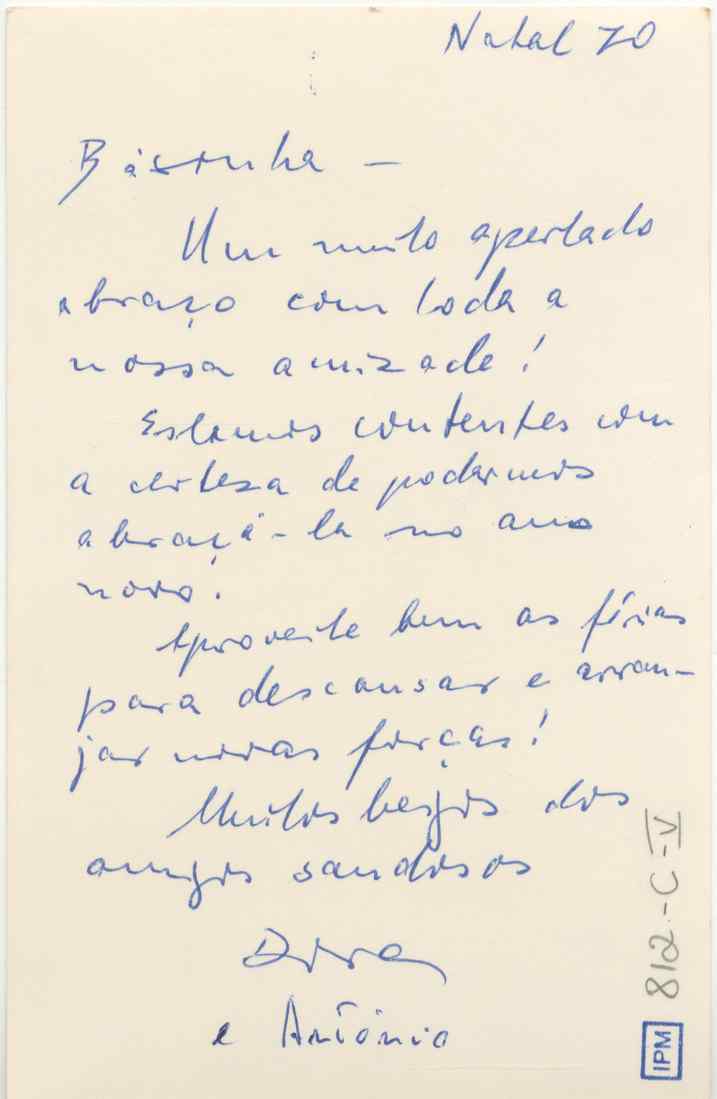 Natal 70
Bàsinha —
Um muito apertado
abraço com toda a
nossa amizade!
Estamos contentes com
a certeza de podermos
abraçá-la no ano
novo.
Aproveite bem as férias
para descansar e arran-
jar novas forças!
Muitos beijos dos
amigos saudosos
e António
812-C-V
IPM